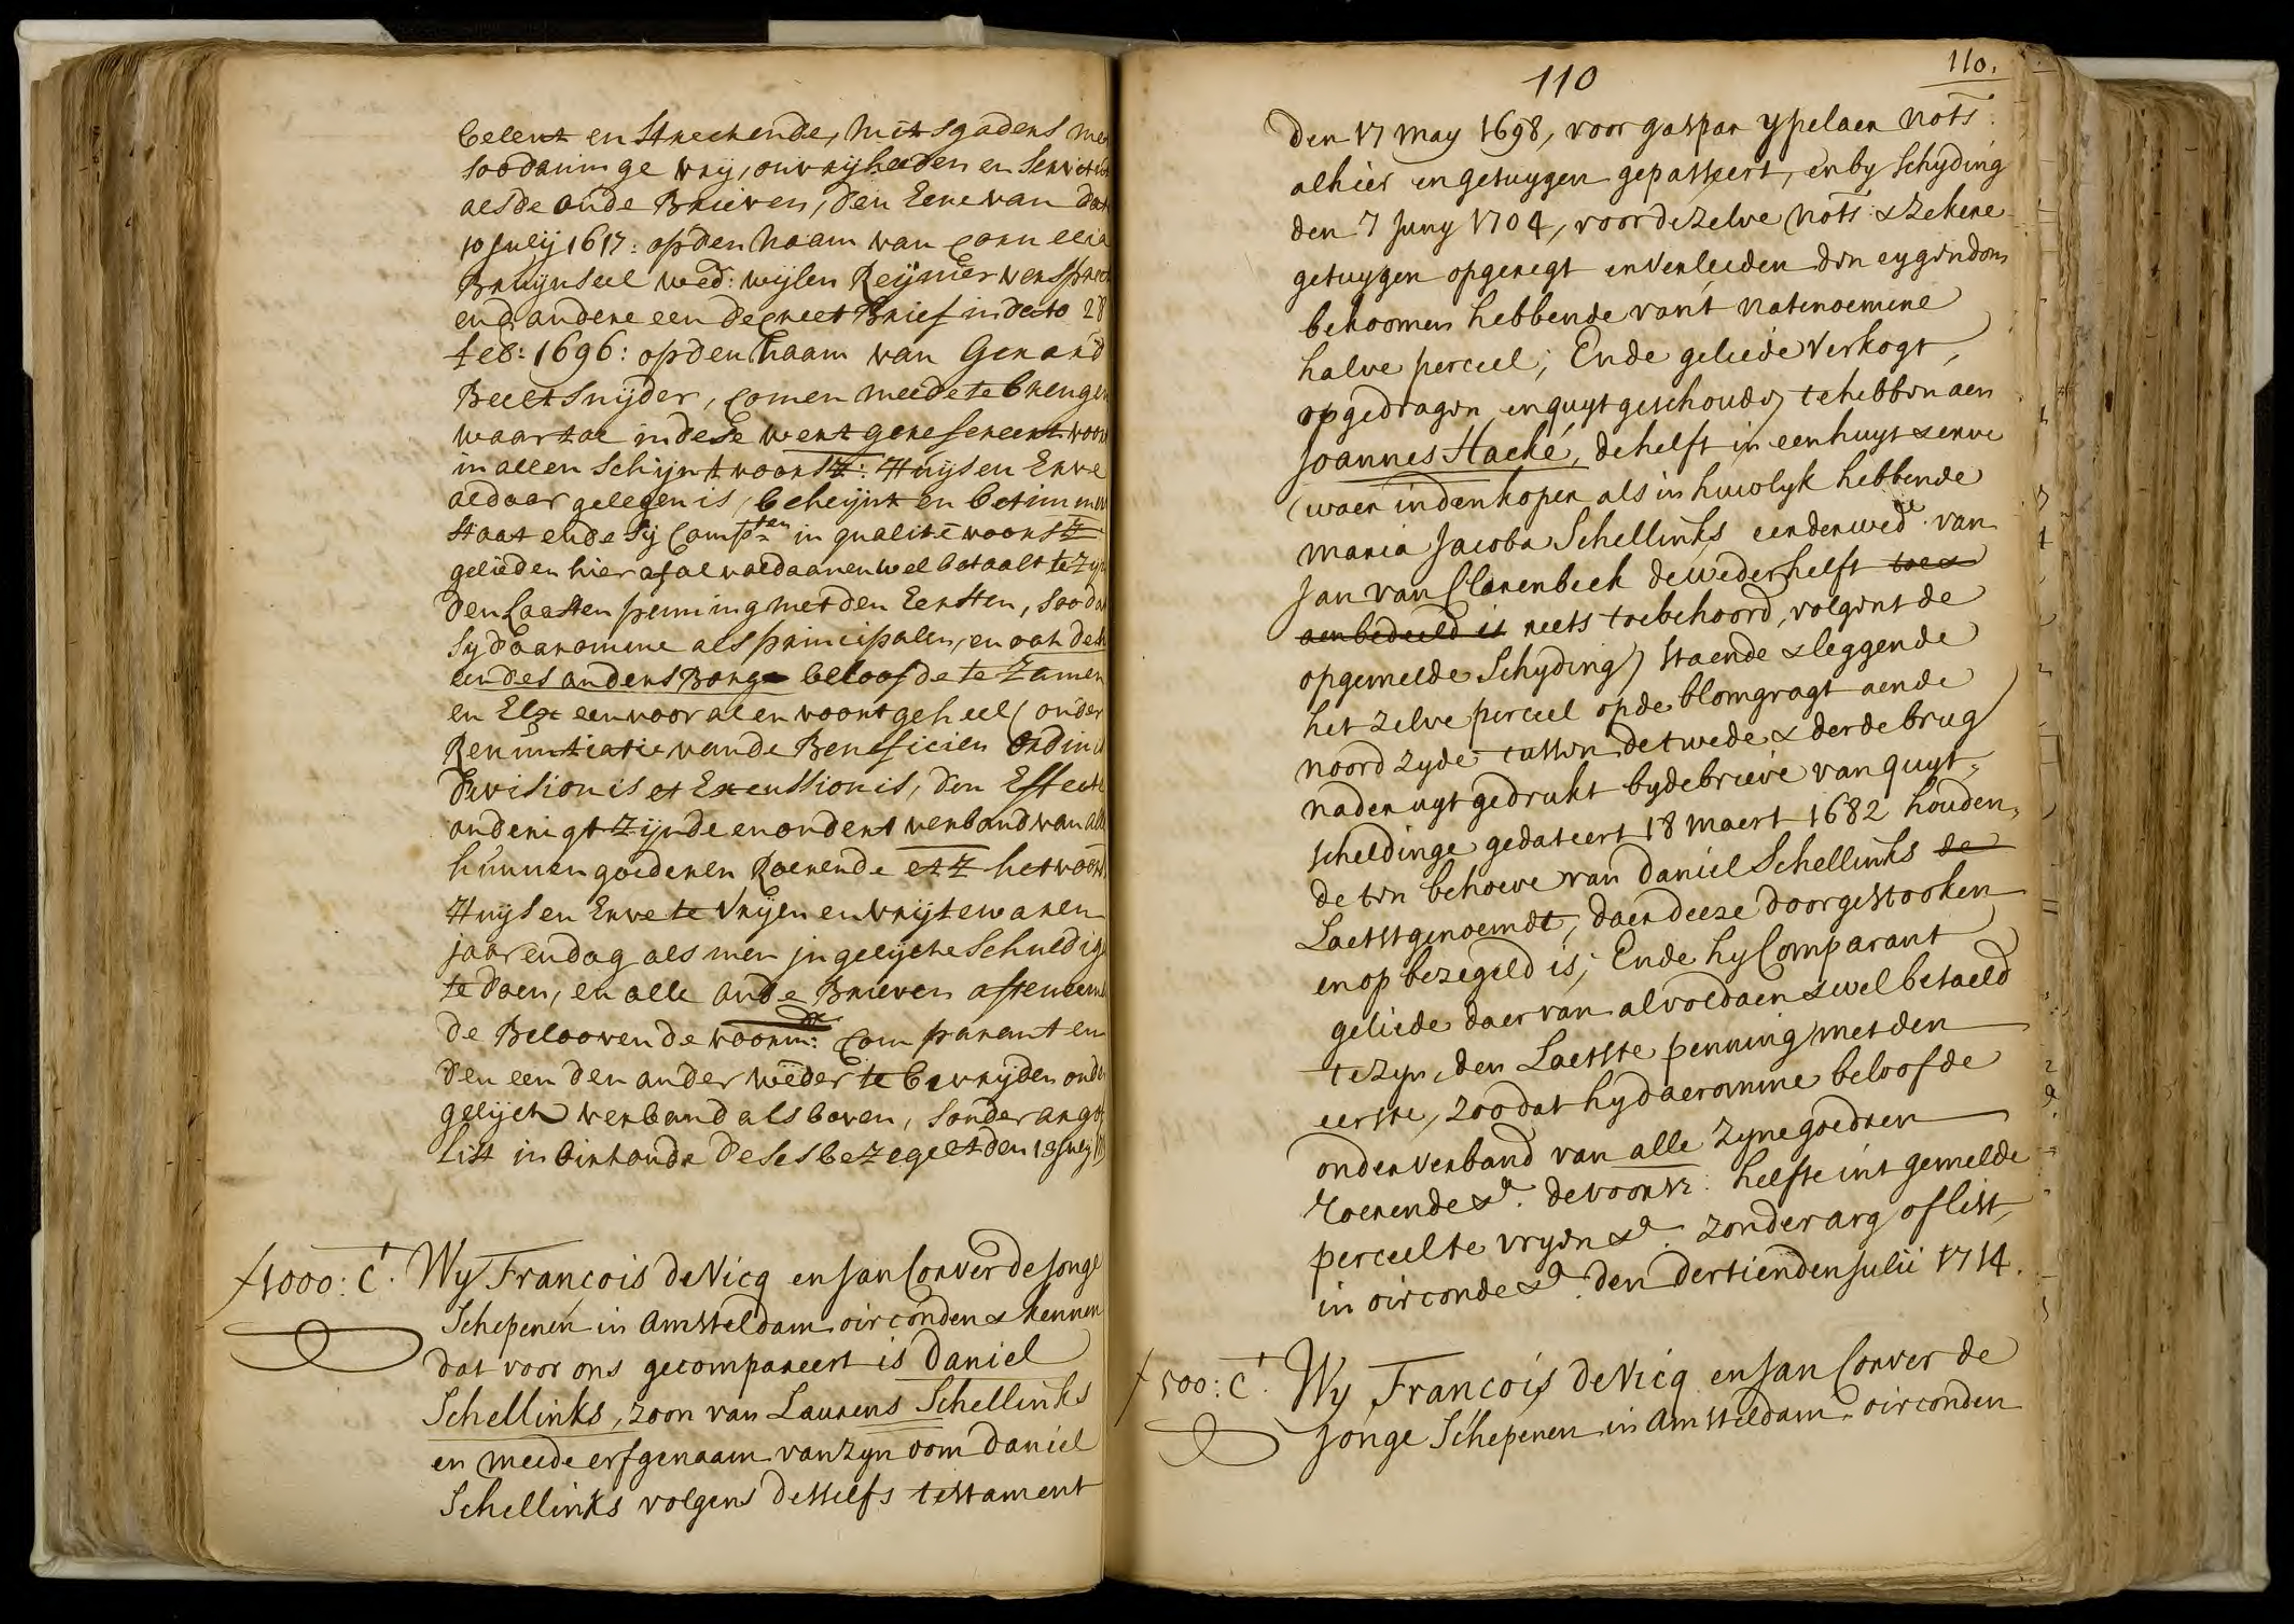 belent en Streckende, mitsgaders me
soodaninge vrij, onvrijheeden en Servitut
als de oude Brieven, den Eene van dat
10 Julij 1617: op den Naam van Cornelia
Bruijnseel wed: wijlen Reijnier versp
end' andere een decreet Brief in dato 28
feb: 1696: op den Naam van Gerard
Beeltsnijder, comen meede te brengen
waar toe in dese wert gerefereert voor
in allen Schijn 't voorsz: Huijs en Erve
aldaar gelegen is, beheijnt en betimmer
staat ende Sij Compten in qualité voorsz
gelieden hier af al voldaan en wel betaalt te Zijn
den Laasten penning met den Eersten, Soo dat
Sij daaromme als principalen, en ook de
een des anders Borge beloofde te Zamen
en Elx een voor al en voort geheel (onder
Renuntiatie van de Beneficien Ordinis
Divisionis et Excussionis, den Effecte
onderigt Zijnde en ondert verband van alle
hunnen goederen Roerende etz het voors
Huijs en Erve te Vrijen en Vrij te waren
jaar en dag als men in gelijcke Schuldig
te doen, en alle oude Brieven afteneemen
de Beloovende voorn: Comparanten
den een den ander wëder te bevrijden onder
gelijck verband als boven, Sonder arg of
List in oirkonde deses bezegelt den 13 Julij
f 1000: Ct. Wy François de Vicq en Jan Corver de Jonge
Schepenen in Amsteldam oirconden & kennen
dat voor ons gecompareert is Daniel
Schellinks, zoon van Laurens Schellinks
en meede erfgenaam van zyn oom Daniel
Schellinks volgens desselfs testament
110
110.
den 17 may 1698, voor gaspar ypelaer Nots:
alhier en getuygen gepasseert, en by Schyding
den 7 Juny 1704, voor de zelve Nots: & zekere
getuygen opgeregt en verleeden den eygendom
bekoomen hebbende van't natenoemene
halve perceel; Ende geliede verkogt,
opgedragen en quytgeschouden te hebben aen
Joannes Hacké, de helft in een huys & erve
(waer in den koper als in huwlyk hebbende
Maria Jacoba Schellinks eerder wede. van
Jan van Clarenbeek de wederhelft toe &
aenbedeeld is reets toebehoord, volgens de
opgemelde Schyding) staende & leggende
het zelve perceel op de blomgragt aende
noord zyde tussen de twede & derde brug
nader uytgedrukt by de brieve van quyt-
scheldinge gedateert 18 maert 1682 houden-
de ten behoeve van Daniel Schellinks de
Laetstgenoemdt, daer deeze doorgestooken
en op bezegeld is; Ende hy Comparant
geliede daer van al voldaen & wel betaeld
te zyn, den Laetste penning met den
eerste, zoo dat hy daeromme beloofde
onder verband van alle zyne goedren
roerende &a. de voorsz: helfte int gemelde
perceel te vryen &a. zonder arg of list,
in oirconde &a. den dertienden Julii 1714.
f 500: Ct. Wy François de Vicq en Jan Corver de
Jonge Schepenen in Amsteldam oirconden